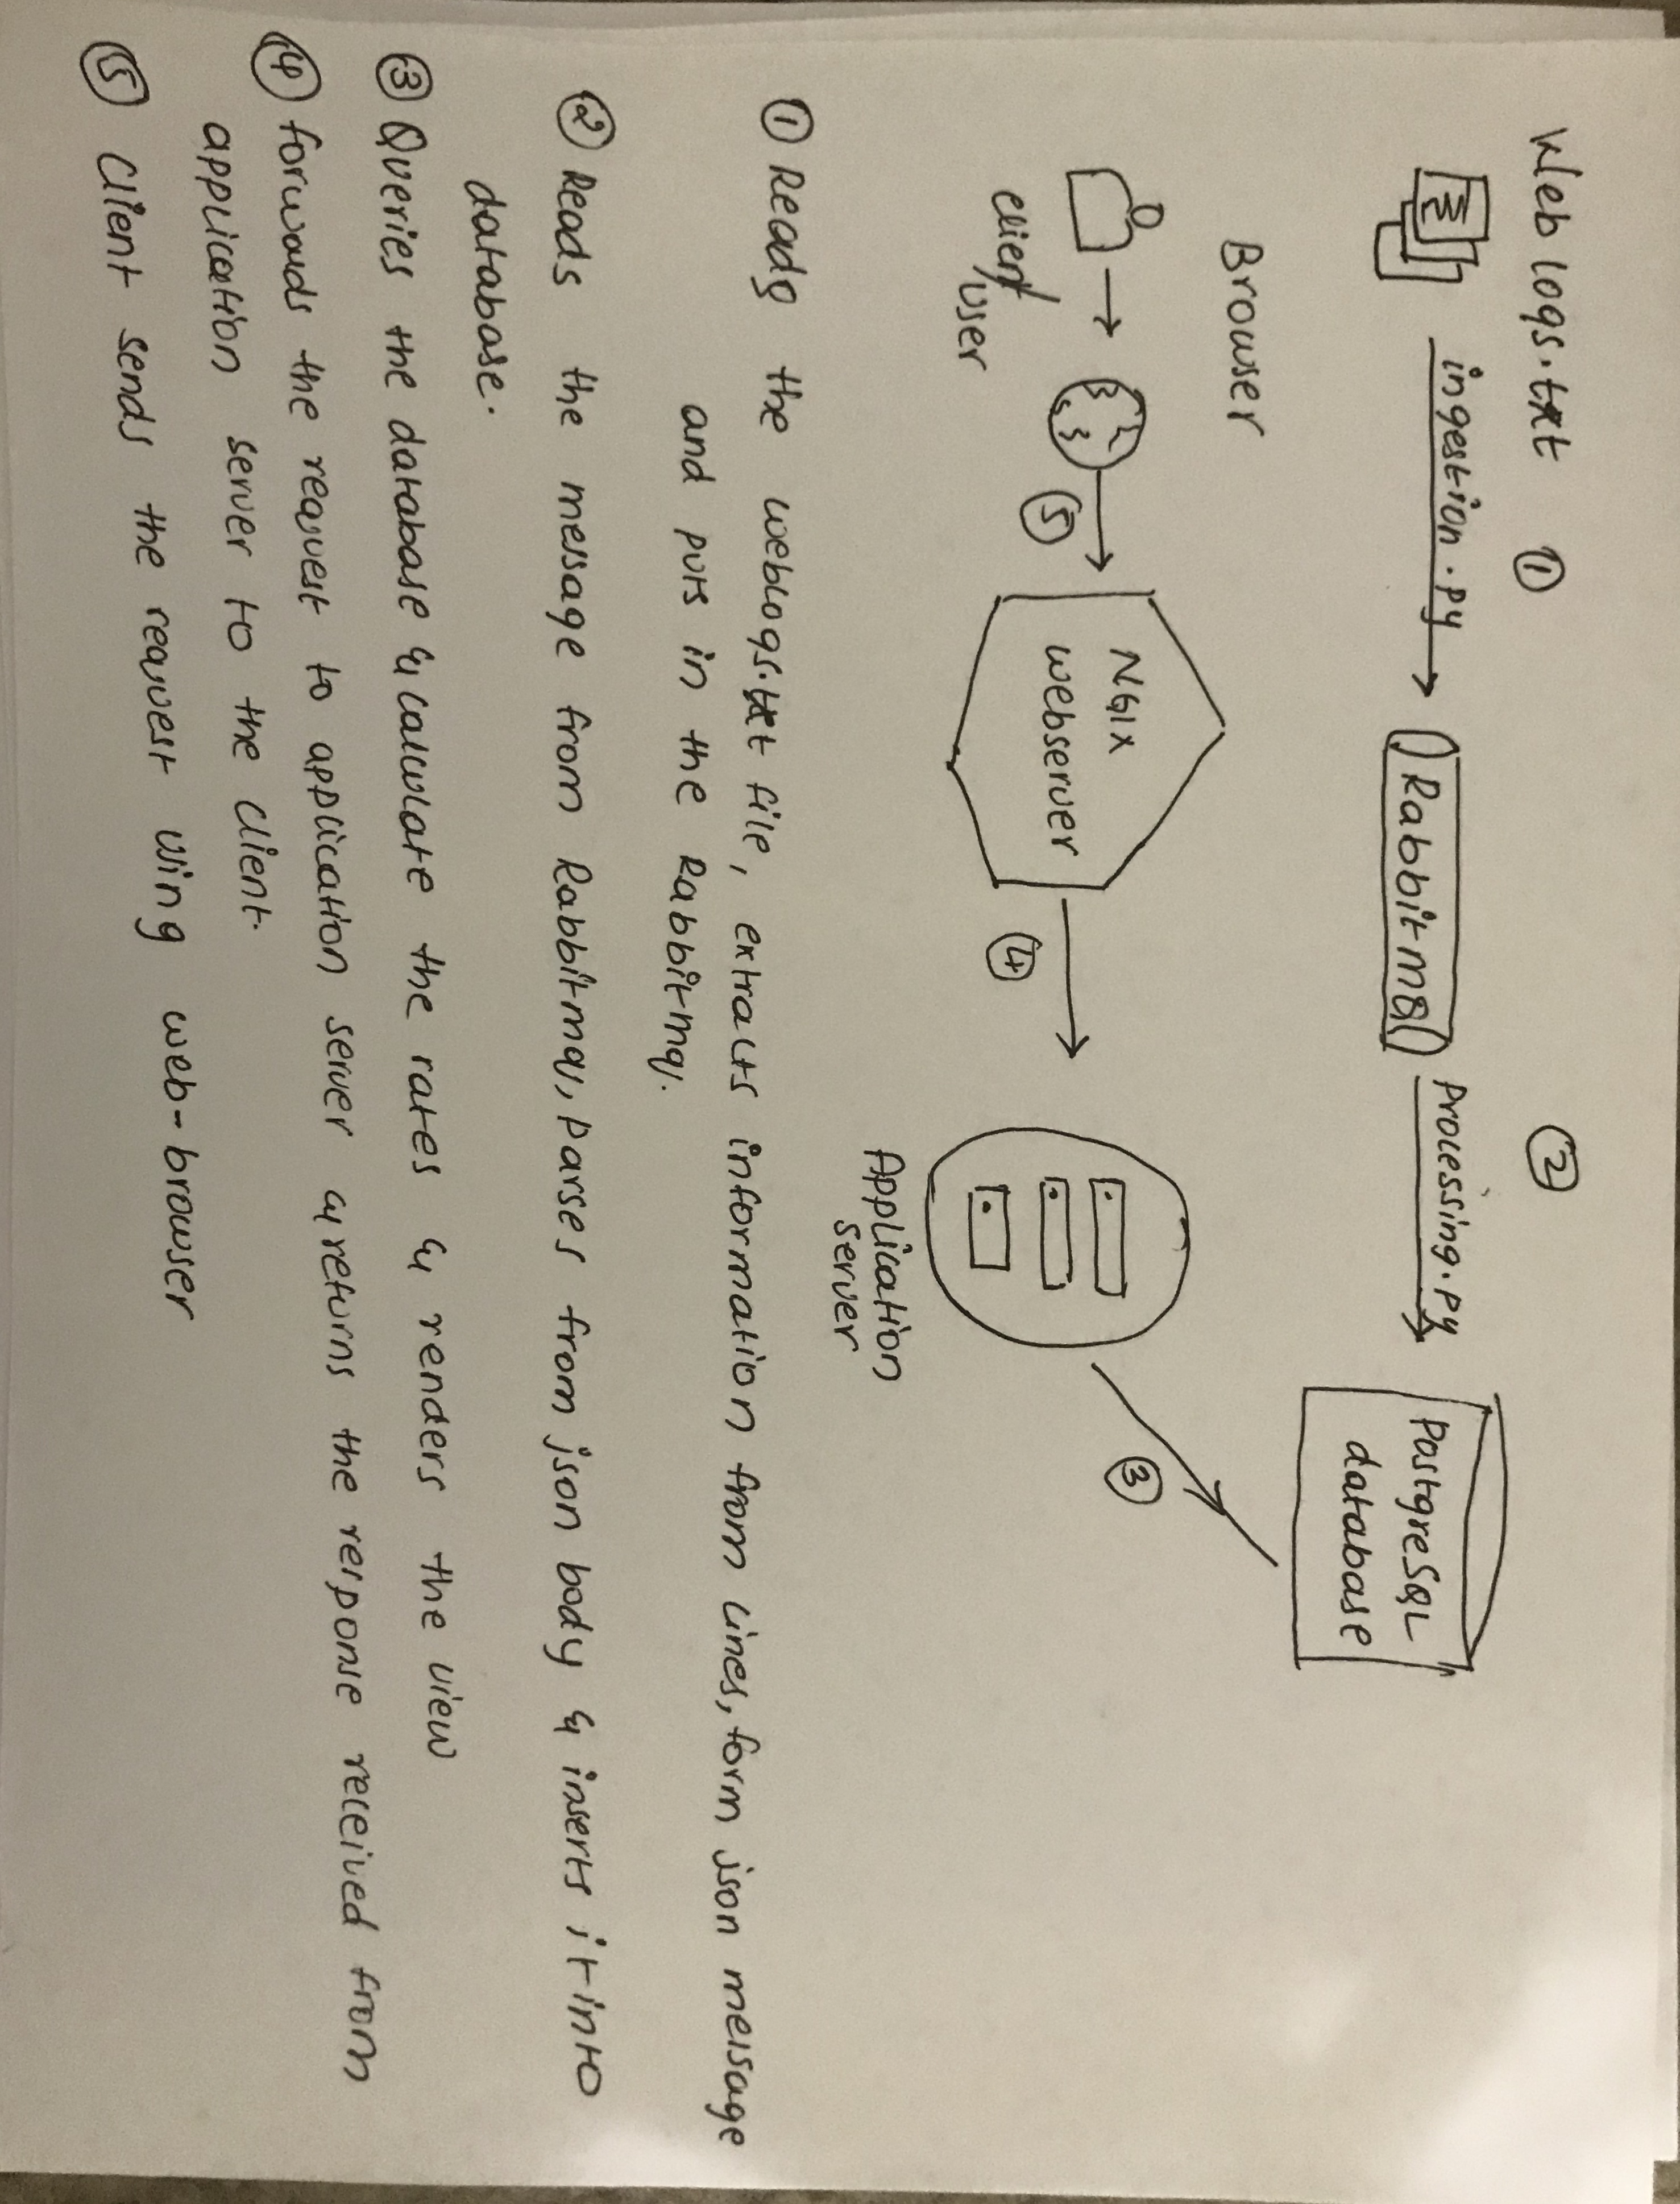 Weblogs.txt ①
②
ingestion.py
Rabbitmq
Processing.py
PostgreSQL
database
Browser
NGIX
webserver
③
⑤
④
client/
user
Application
server
① Reads the weblogs.txt file, extracts information from lines, form json message
and puts in the Rabbitmq.
② Reads the message from Rabbitmq, parses from json body & inserts it into
database.
③ Queries the database & calculate the rates & renders the view
④ forwards the request to application server & returns the response received from
application server to the client.
⑤ Client sends the request using web-browser